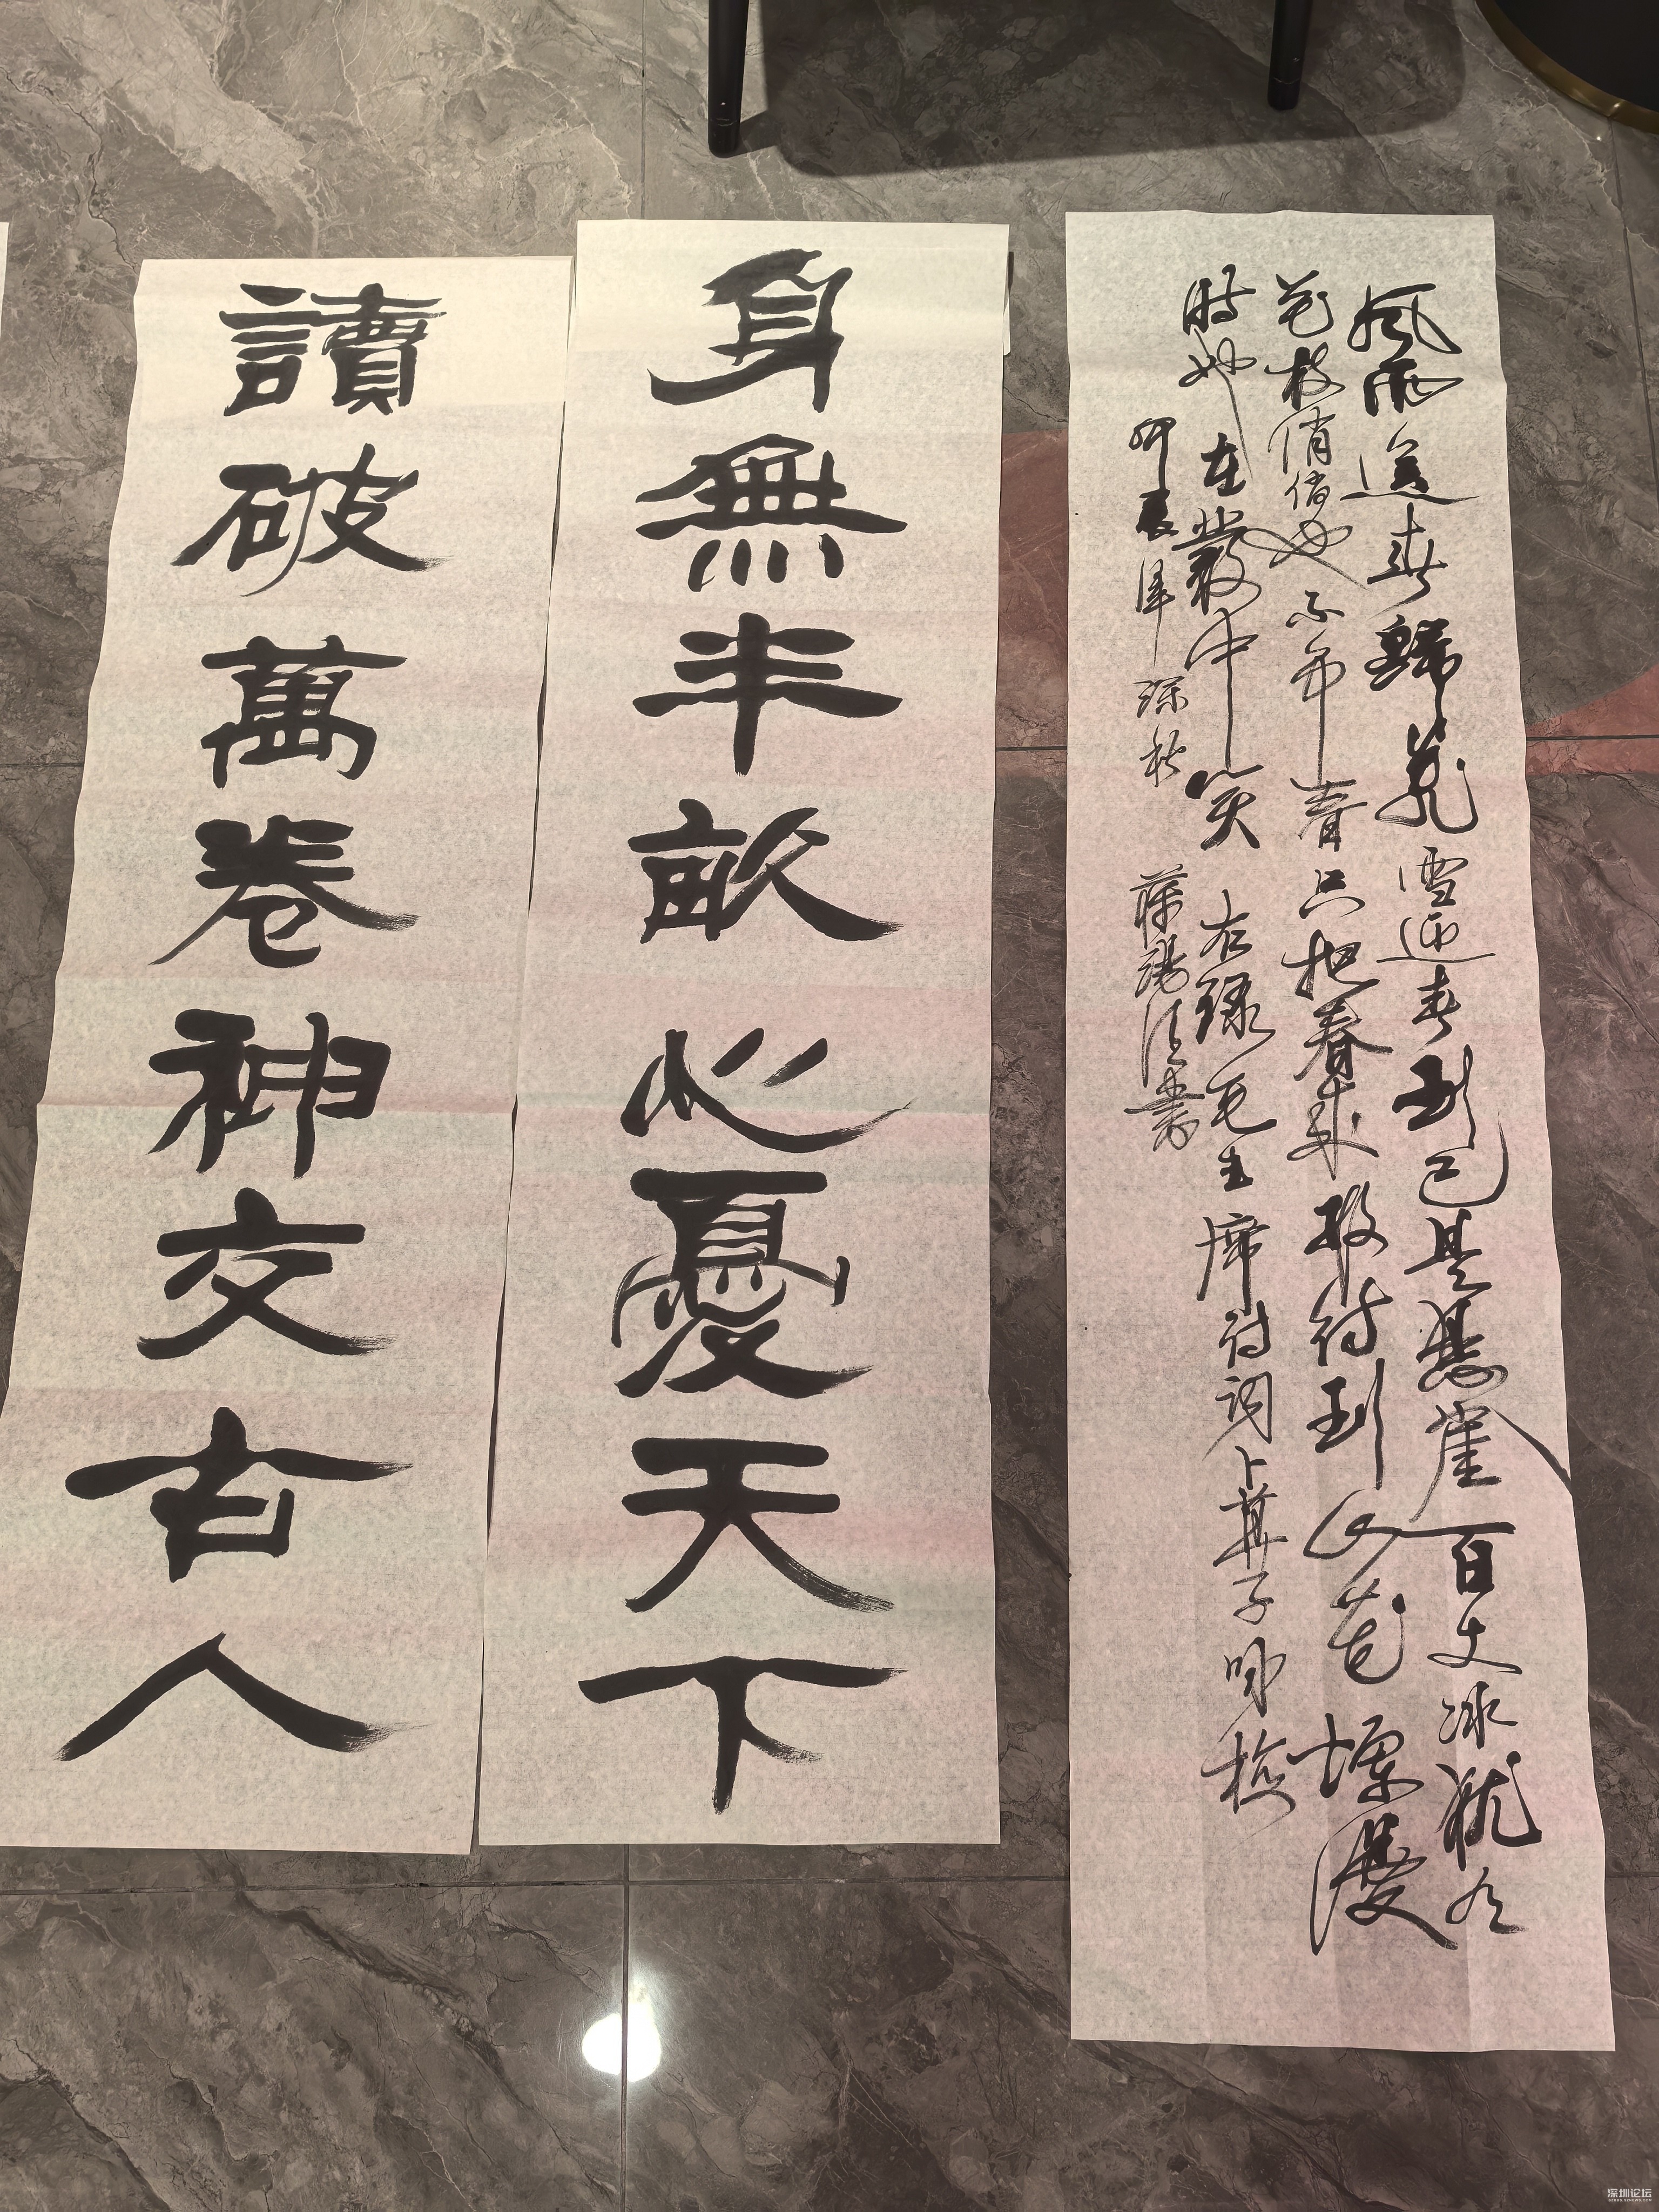 風雨送春歸飛雪迎春到已是懸崖百丈冰猶有
花枝俏俏也不争春只把春来報待到山花爛漫
時她在叢中笑 右録毛主席诗词卜算子咏梅
甲辰年深秋 書
身無半畝心憂天下
讀破萬卷神交古人
深圳论坛
SZBBS.SZNEWS.COM